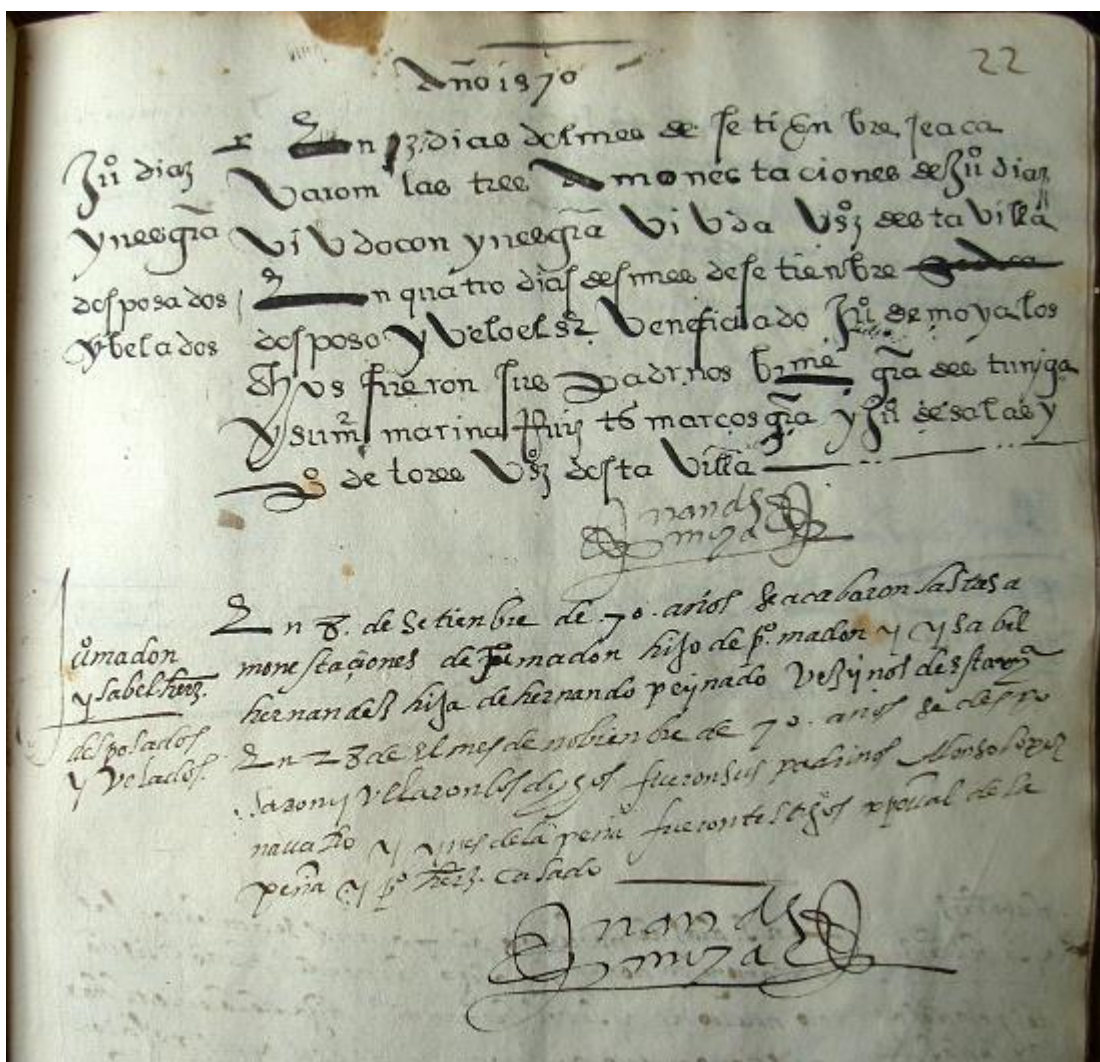 22
Año 1570
Juº diaz
y nes grã
desposados
y belados
En 3 dias del mes de setienbre se aca
varom las tres amonestaciones de Juº diaz
viudo con ynes grã viuda vºs desta villa
En quatro dias del mes de setienbre
desposo y velo el sr veneficiado Juº de moya los
dhos fueron sus padrinos bme grã
y su mr marina Ruiz tos marcos grã y Juº de salas y
de tores vºs desta villa
Juº madon
ysabel herz.
desposados
y velados.
En 8. de setienbre de 70. años se acabaron las tas a
monestaçiones de Juº madon hijo de pº. madon y ysabel
hernandez hija de hernando peynado vezinos desta
En 28 de el mes de nobienbre de 70. años se despo
saron y velaron los dhos fueron sus padrinos Alonso lopez
nauarro y ynes de la peña fueron testigos xpoual de la
peña y pº herz. casado